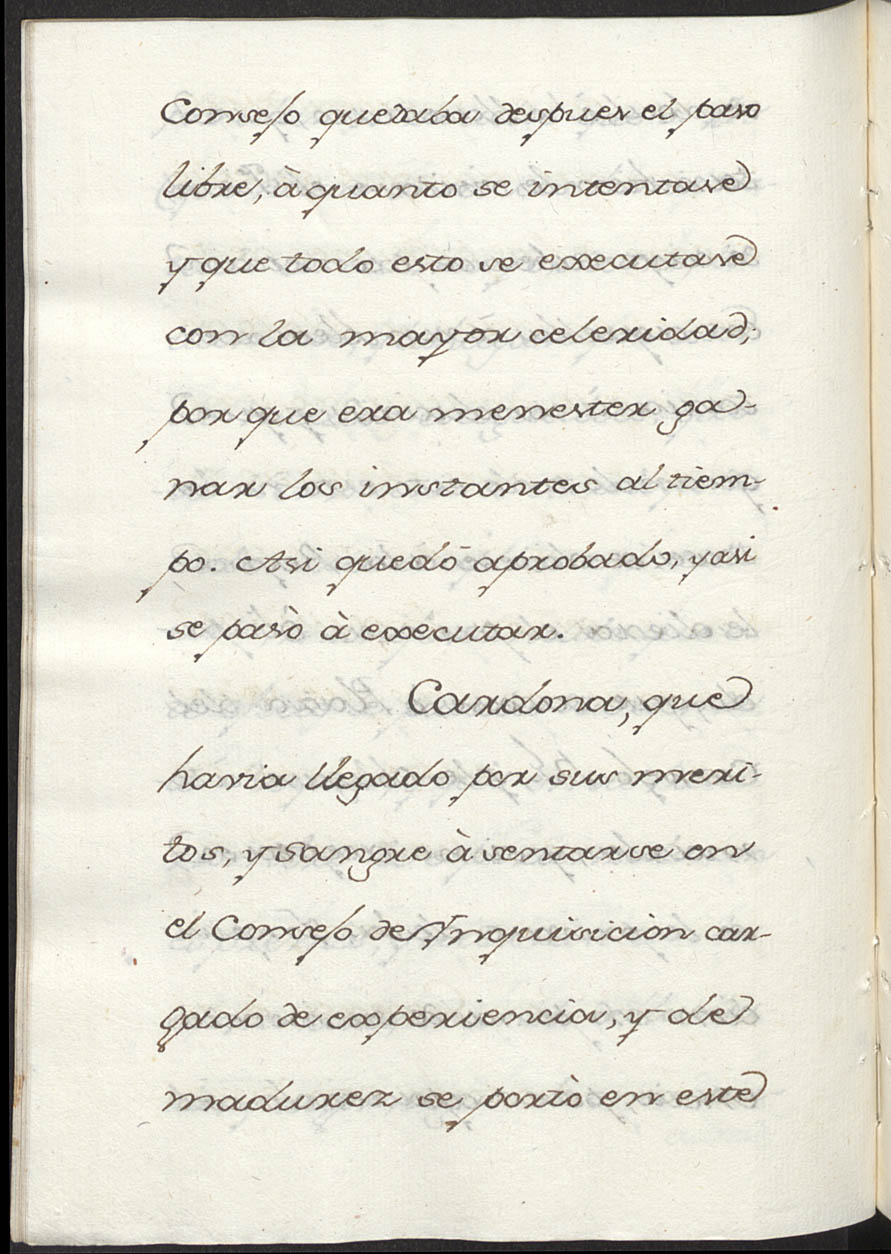 Consejo quedaba despues el paso
libre, à quanto se intentase
y que todo esto se executase
con la mayor celeridad,
por que era menester ga-
nar los instantes al tiem-
po. Asi quedó aprobado, y asi
se pasò à executar.
Cardona, que
havia llegado por sus meri-
tos, y Sangre à sentarse en
el Consejo de Ynquisicion car-
gado de experiencia, y de
madurez se portò en este